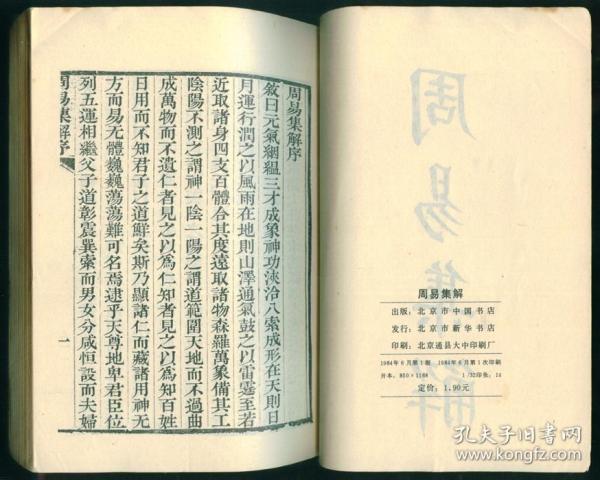 周易集解序
敘曰元氣絪緼三才成象神功浹洽八索成形在天則日
月運行潤之以風雨在地則山澤通氣鼓之以雷霆至若
近取諸身四支百體合其度遠取諸物森羅萬象備其工
陰陽不測之謂神一陰一陽之謂道範圍天地而不過曲
成萬物而不遺仁者見之以爲仁知者見之以爲知百姓
日用而不知君子之道鮮矣斯乃顯諸仁而藏諸用神无
方而易无體巍巍蕩蕩難可名焉逮乎天尊地卑君臣位
列五運相繼父子道彰震巽索而男女分咸恒設而夫婦
周易集解序
一
周易集解
周易集解
出版：北京市中国书店
发行：北京市新华书店
印刷：北京通县大中印刷厂
1984年6月第1版 1984年6月第1次印刷
开本：850×1168 1/32印张：14
定价：1.90元
孔夫子旧书网
www.kongfz.com